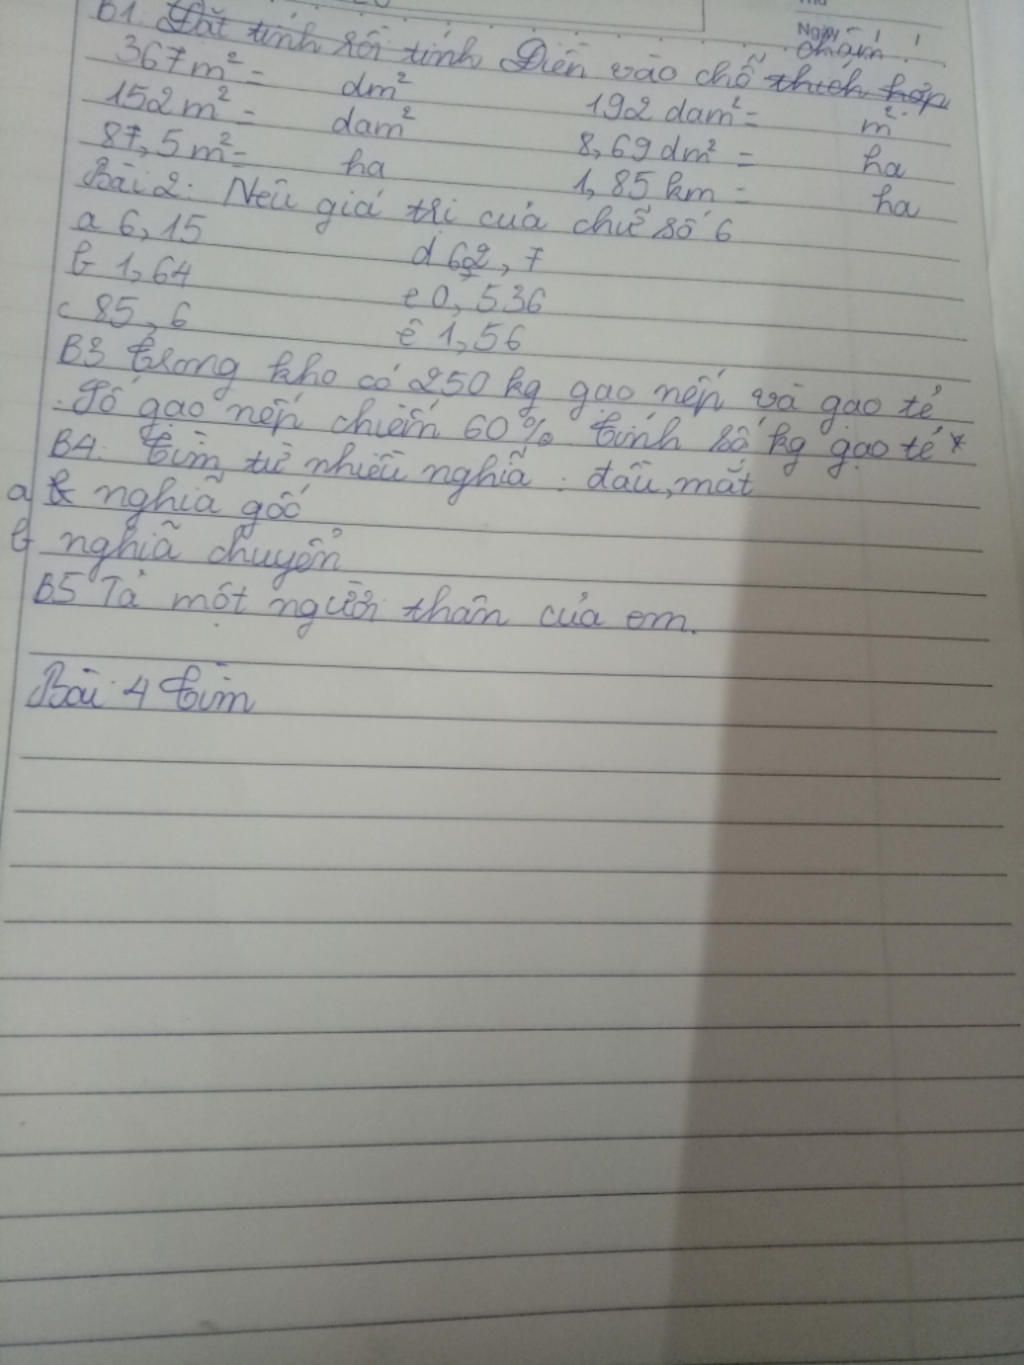 B1. Đặt tính rồi tính Điền vào chỗ thích hợp
Ngày / /
chấm
367m² = dm²
192 dam² = m²
152m² = dam²
8,69dm² = ha
87,5m² = ha
1,85km = ha
Bài 2: Nêu giá trị của chữ số 6
a 6,15
d 62,7
b 1,64
e 0,536
c 85,6
ê 1,56
B3 trong kho có 250 kg gạo nếp và gạo tẻ
Số gạo nếp chiếm 60% tính số kg gạo tẻ *
B4. tìm từ nhiều nghĩa : đầu, mắt
a nghĩa gốc
b nghĩa chuyển
B5 Tả một người thân của em.
Bài 4 tìm